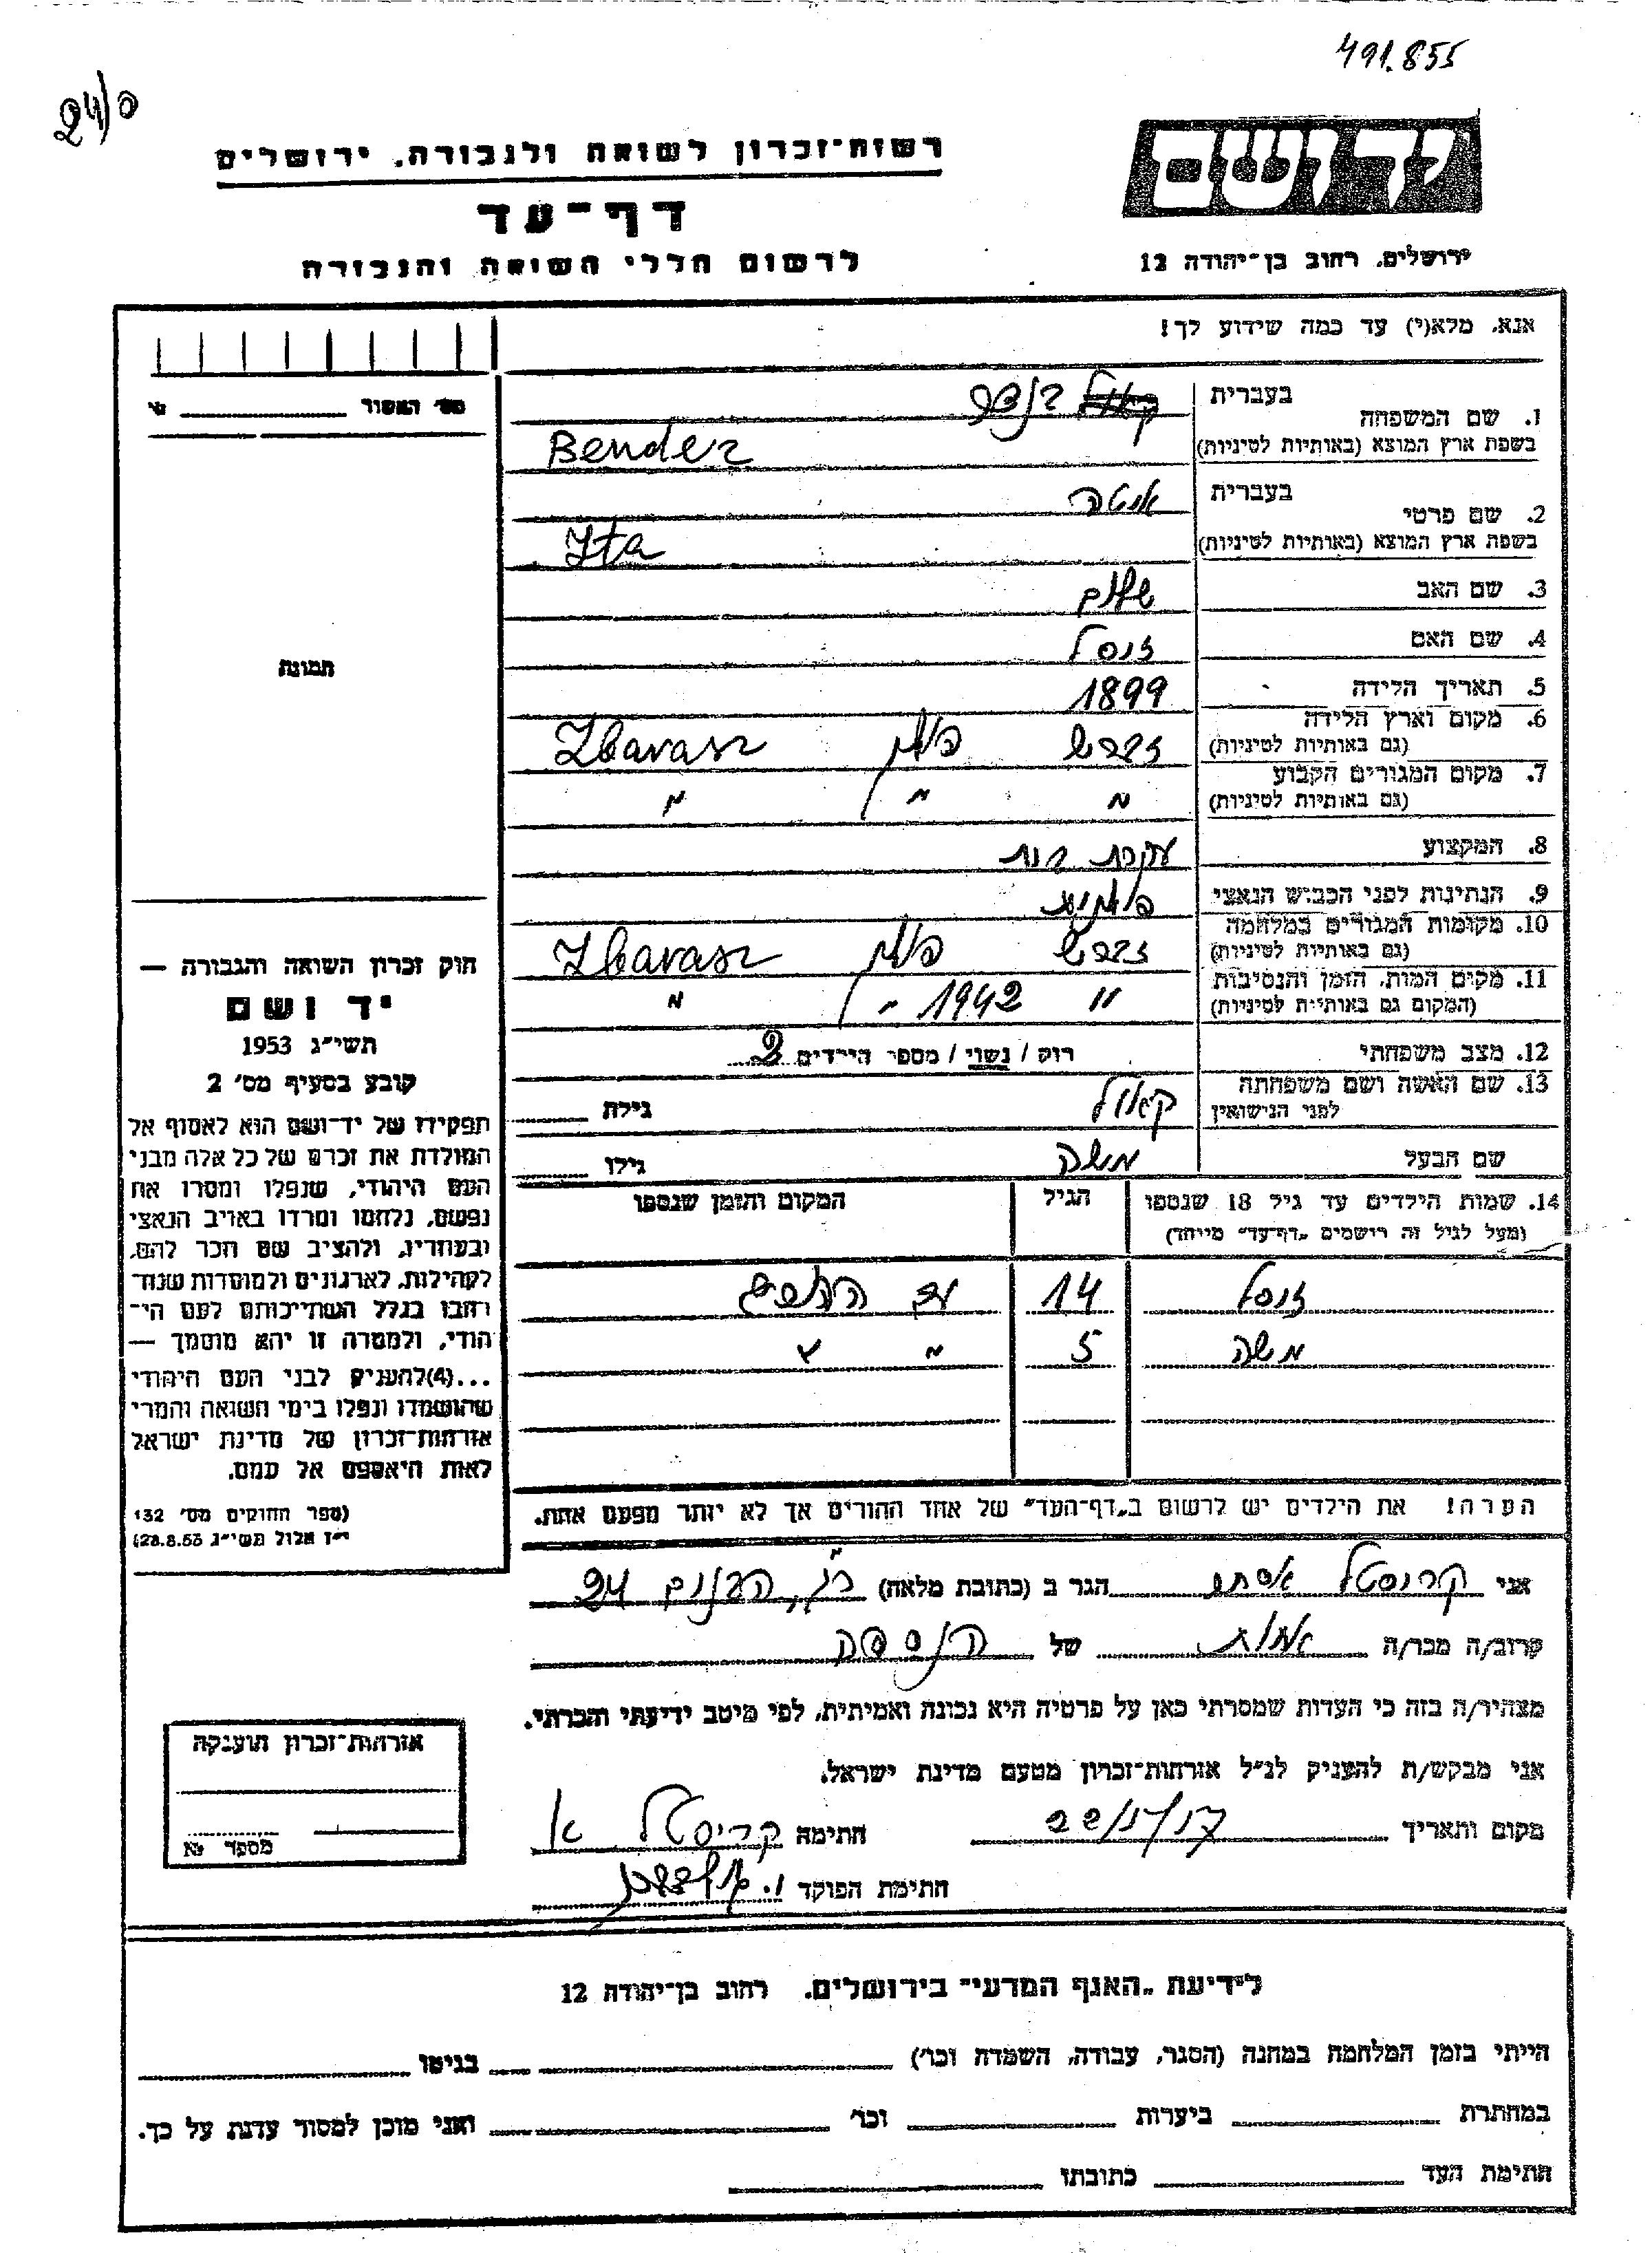 491.855
24/ס
יד ושם
רשות-זכרון לשואה ולגבורה, ירושלים
דף-עד
לרשום חללי השואה והגבורה
ירושלים, רחוב בן-יהודה 12
אנא, מלא(י) עד כמה שידוע לך!
מס' האשור
1. שם המשפחה
בעברית בנדר
בשפת ארץ המוצא (באותיות לטיניות) Bender
2. שם פרטי
בעברית איטה
בשפת ארץ המוצא (באותיות לטיניות) Ita
3. שם האב שלום
4. שם האם זיסל
5. תאריך הלידה 1899
6. מקום וארץ הלידה (גם באותיות לטיניות) זברש פולין Zbarasz
7. מקום המגורים הקבוע (גם באותיות לטיניות) " " "
8. המקצוע עקרת בית
9. הנתינות לפני הכבוש הנאצי פולניה
10. מקומות המגורים במלחמה (גם באותיות לטיניות) זברש פולין Zbarasz
11. מקום המות, הזמן והנסיבות (המקום גם באותיות לטיניות) " 1942 " "
12. מצב משפחתי רוק / נשוי / מספר הילדים 2
13. שם האשה ושם משפחתה לפני הנישואין קאול גילה
שם הבעל משה גילו
14. שמות הילדים עד גיל 18 שנספו
(מעל לגיל זה רושמים "דף-עד" מיוחד)
הגיל
המקום והזמן שנספו
זיסל 14 עם ההורים
משה 5 " "
הערה! את הילדים יש לרשום ב"דף-העד" של אחד ההורים אך לא יותר מפעם אחת.
תמונה
חוק זכרון השואה והגבורה —
יד ושם
תשי"ג 1953
קובע בסעיף מס' 2
תפקידו של יד-ושם הוא לאסוף אל
המולדת את זכרם של כל אלה מבני
העם היהודי, שנפלו ומסרו את
נפשם, נלחמו ומרדו באויב הנאצי
ובעוזריו, ולהציב שם וזכר להם,
לקהילות, לארגונים ולמוסדות שנח־
רבו בגלל השתייכותם לעם הי־
הודי, ולמטרה זו יהא מוסמך —
...(4)להעניק לבני העם היהודי
שהושמדו ונפלו בימי השואה והמרי
אזרחות-זכרון של מדינת ישראל
לאות היאספם אל עמם.
(ספר החוקים מס' 132
י"ז אלול תשי"ג 28.8.53)
אני קריסטל אסתר הגר ב (כתובת מלאה) ר"ג, הבנים 24
קרוב/ה מכר/ה אחות של הנספה
מצהיר/ה בזה כי העדות שמסרתי כאן על פרטיה היא נכונה ואמיתית, לפי מיטב ידיעתי והכרתי.
אני מבקש/ת להעניק לנ"ל אזרחות-זכרון מטעם מדינת ישראל.
מקום ותאריך חתימה קריסטל א
חתימת הפוקד
אזרחות-זכרון הוענקה
מספר
לידיעת "האגף המדעי" בירושלים, רחוב בן-יהודה 12
הייתי בזמן המלחמה במחנה (הסגר, עבודה, השמדה וכו') בגיטו
במחתרת ביערות וכו' ואני מוכן למסור עדות על כך.
חתימת העד כתובתו